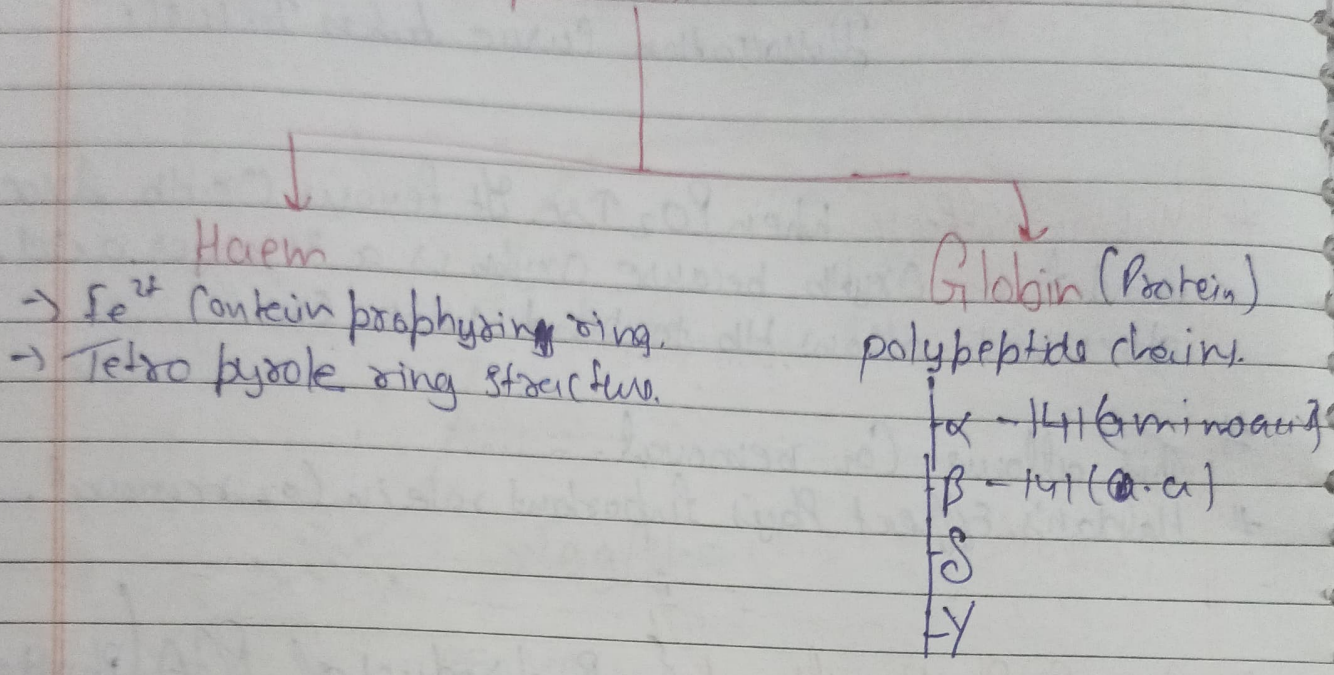 Haem
→ fe²⁺ Contein prophyrin ring.
→ Tetro pyrole ring structure.
Globin (Protein)
polypeptide chains.
α - 141 (aminoacid)
β - 141 (a.a)
δ
γ